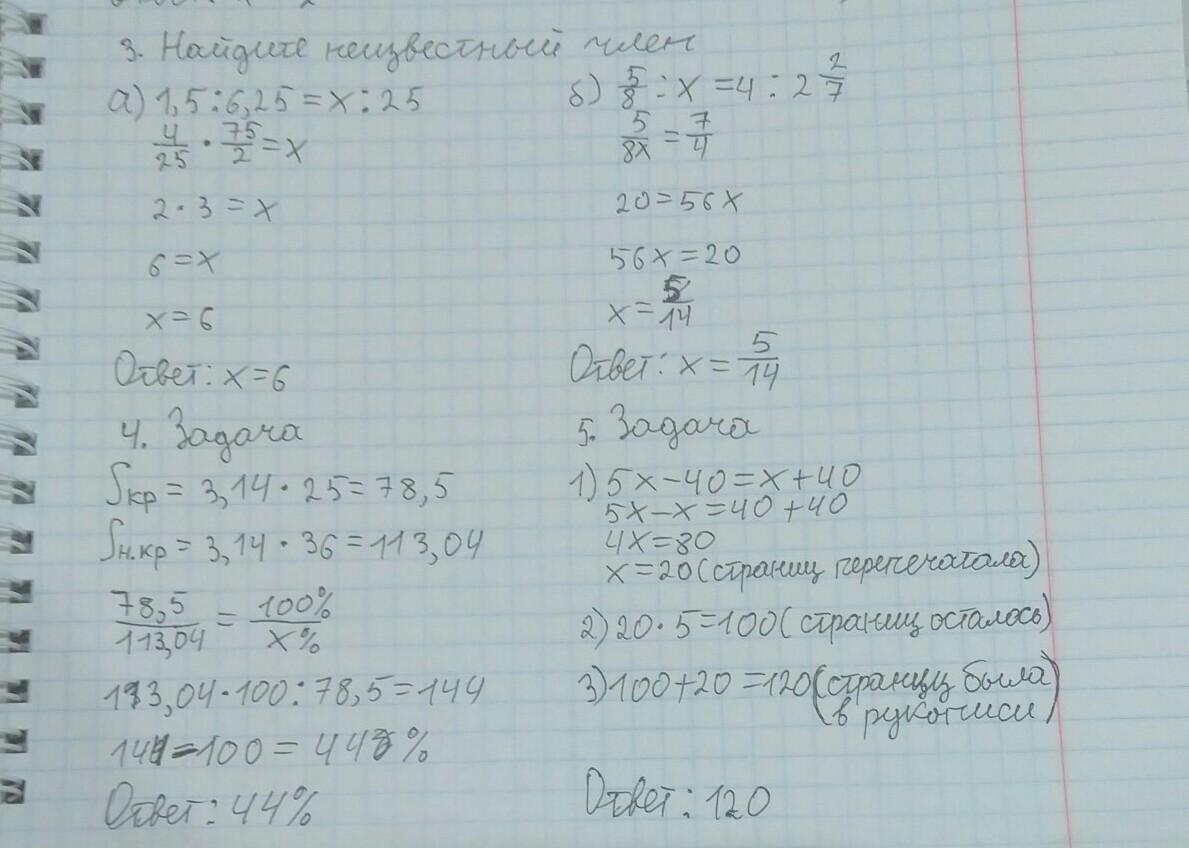 3. Найдите неизвестный член
а) 1,5 : 6,25 = x : 25
4/25 · 75/2 = x
2 · 3 = x
6 = x
x = 6
Ответ: x = 6
б) 5/8 : x = 4 : 2 2/7
5/8x = 7/4
20 = 56x
56x = 20
x = 5/14
Ответ: x = 5/14
4. Задача
Sкр = 3,14 · 25 = 78,5
Sн.кр = 3,14 · 36 = 113,04
78,5/113,04 = 100%/x%
113,04 · 100 : 78,5 = 144
144 - 100 = 44%
Ответ: 44%
5. Задача
1) 5x - 40 = x + 40
5x - x = 40 + 40
4x = 80
x = 20 (страниц перепечатала)
2) 20 · 5 = 100 (страниц осталось)
3) 100 + 20 = 120 (страниц была
в рукописи)
Ответ: 120